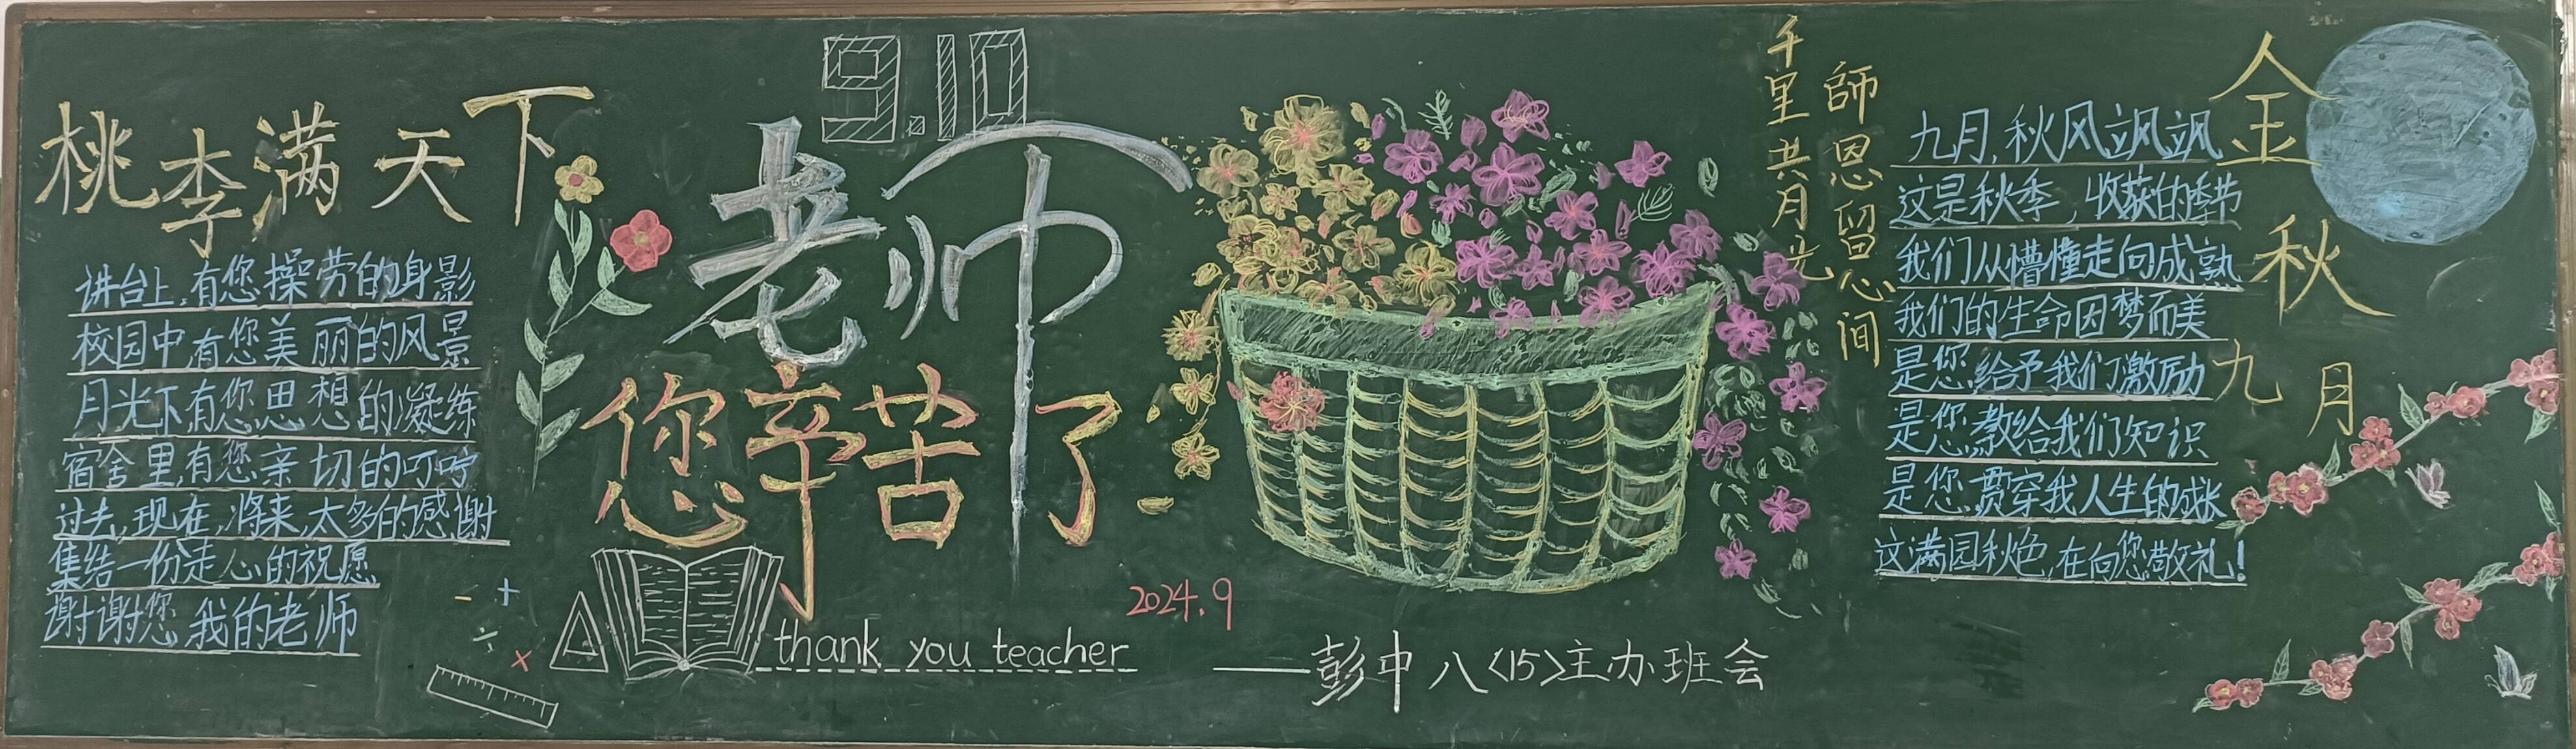 桃李满天下
讲台上,有您操劳的身影
校园中,有您美丽的风景
月光下,有您思想的凝练
宿舍里,有您亲切的叮咛
过去,现在,将来,太多的感谢
集结一份走心的祝愿
谢谢您 我的老师
9.10
老师
您辛苦了
thank you teacher
2024.9
——彭中八<15>主办班会
師恩留心间
千里共月光
金秋九月
九月,秋风飒飒
这是秋季,收获的季节
我们从懵懂走向成熟
我们的生命因梦而美
是您,给予我们激励
是您,教给我们知识
是您,贯穿我人生的成长
这满园秋色,在向您敬礼!